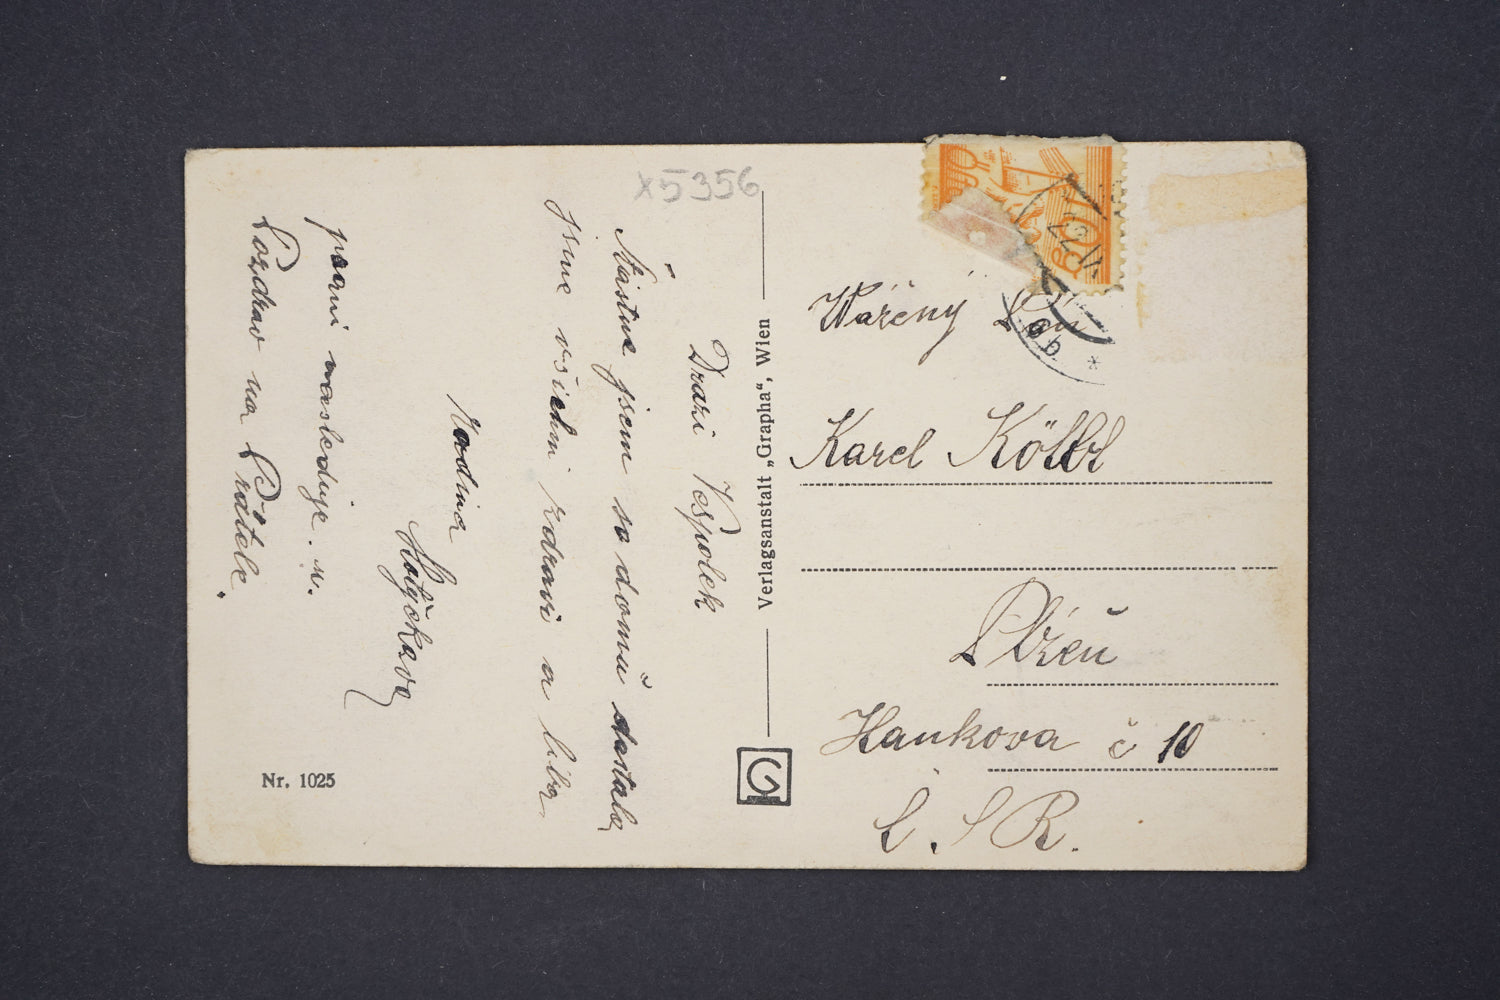 x5356
Drazi Vespolek
Šťastně jsem se domů dostala
jsme všichni zdravi a líba
Rodina
psani nasleduje. M.
Pozdrav na Přátele.
Nr. 1025
Verlagsanstalt „Grapha“, Wien
G
80
22. VI
Vážený Pán
Karel Költl
Plzeň
Hankova č 10
Č. S R.